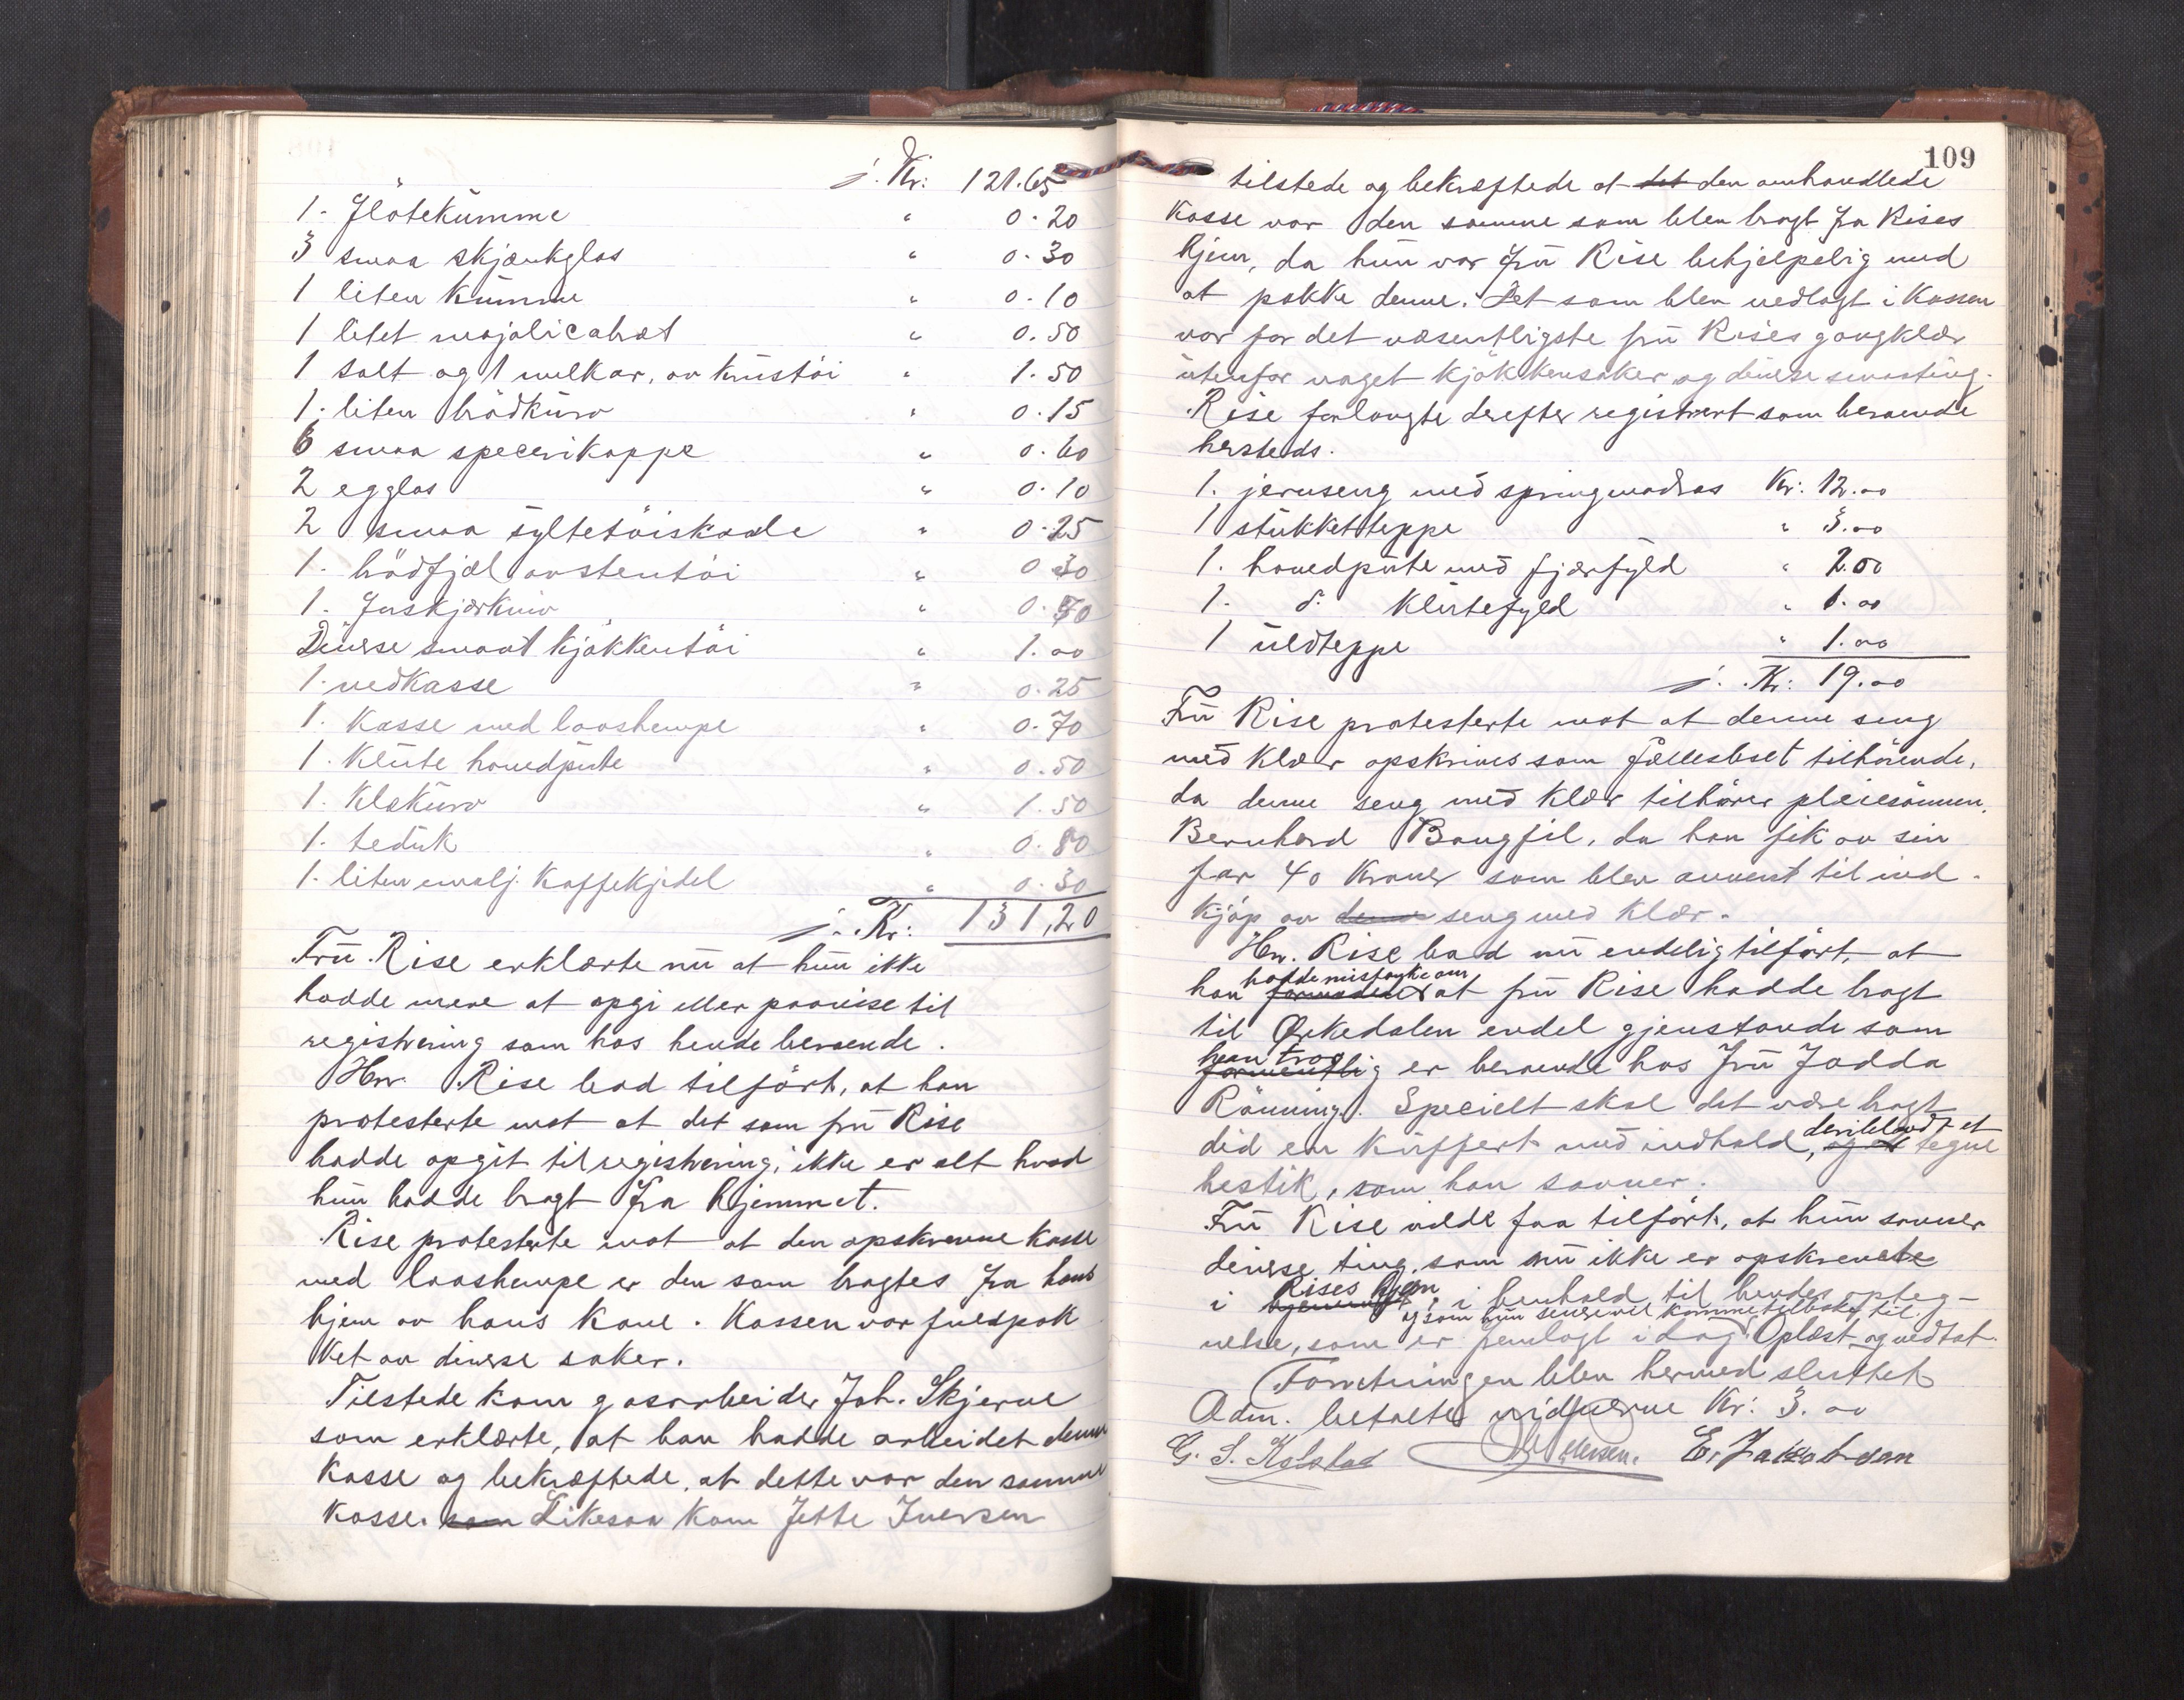 j. Kr: 121.65
1. Flötekumme " 0.20
3 smaa skjænkglas " 0.30
1 liten kumme " 0.10
1 litet majolicabræt " 0.50
1 salt og 1 melkar, av kunstöi " 1.50
1. liten brödkurv " 0.15
6 smaa specerikoppe " 0.60
2 egglas " 0.10
2 smaa syltetöiskaale " 0.25
1. brödfjæl av stentöi " 0.30
1. Forskjærkniv " 0.70
Diverse smaat kjökkentöi " 1.00
1. vedkasse " 0.25
1. Kasse med laashempe " 0.70
1. Klüte hovedpute " 0.50
1. Klækürv " 1.50
1. teduk " 0.80
1. liten emalj. Kaffekjedel " 0.30
j. Kr: 131,20
Frü Rise erklærte nü at hün ikke
hadde mere at opgi eller paavise til
registrering som hos hende beroende.
Hr. Rise bad tilfört, at han
protesterte mot at det som frü Rise
hadde opgit til registrering, ikke er alt hvad
hün hadde bragt fra hjemmet.
Rise protesterte mot at den opskrevne kasse
med laashempe er den som bragtes fra hans
hjem av hans kone. Kassen var fuldpak
ket av diverse saker.
Tilstede kom gasarbeider Joh. Skjerve
som erklærte, at han hadde arbeidet denne
kasse og bekræftede, at dette var den samme
kasse. som Likesaa kom Jette Iversen
109
tilstede og bekræftede at det den omhandlede
kasse var den samme som blev bragt fra Rises
hjem, da hün var frü Rise behjelpelig med
at pakke denne. Det som blev nedlagt i kassen
var for det væsentligste frü Rises gangklær
ütenfor noget kjökkensaker og diverse smaating.
Rise forlangte derefter registrert som beroende
hersteds.
1. jernseng med springmadras Kr: 12.00
1 stükketteppe " 3.00
1. hovedpüte med fjærfyld " 2.00
1. d. Klütefyld " 1.00
1 üldteppe " 1.00
j. Kr: 19.00
Frü Rise protesterte mot at denne seng
med klær opskrives som fællesboet tilhörende,
da denne seng med klær tilhörer pleiesönnen,
Bernhard Bangfil, da han fik av sin
far 40 kroner som blev anvent til ind-
kjöp av denne seng med klær.
Hr. Rise bad nü endelig tilfört, at
hadde mistanke om
han formodede at frü Rise hadde bragt
til Orkedalen endel gjenstande som
han tror
formentlig er beroende hos frü Jodda
Rönning. Specielt skal det være bragt
deriblandt et
did en küffert med indhold, og et tegne
bestik, som han savner.
Frü Rise vilde faa tilfört, at hün savner
diverse ting, som nü ikke er opskrevete
Rises hjem
i hjemmet, i henhold til hendes opteg-
og som hün senere vil komme tilbake til.
nelse, som er fremlagt i dag. Oplæst og vedtat.
Forretningen blev hermed sluttet
Adm. betalte vidnerne Kr: 3.00
G. S. Kolstad E. Jakobsen